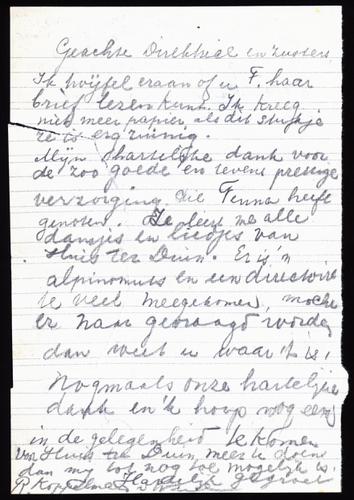 Geachte Direktrice en zusters,
Ik twijfel eraan of u F. haar
brief lezen kunt. Ik kreeg
niet meer papier, als dit stukje
ze is erg zuinig.
Mijn hartelijke dank voor
de zoo goede en tevens prettige
verzorging, die Fenna heeft
genoten. Ze leert me alle
dansjes en liedjes van
Huis ter Duin. Er is 'n
alpinomuts en een directoire
te veel meegekomen, mocht
er naar gevraagd worden
dan weet u waar 't is!
Nogmaals onze hartelijke
dank en 'k hoop nog eens
in de gelegenheid te komen
voor Huis ter Duin, meer te doen
dan mij tot nog toe mogelijk is.
Hartelijk gegroet